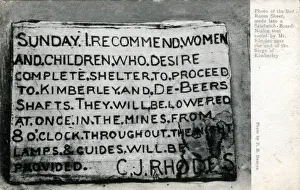 SUNDAY. I. RECOMMEND, WOMEN
AND, CHILDREN, WHO, DESIRE
COMPLETE, SHELTER, TO, PROCEED
TO, KIMBERLEY, AND, DE-BEERS
SHAFTS. THEY, WILL, BE, LOWERED
AT, ONCE, IN, THE, MINES, FROM
8 O'CLOCK, THROUGHOUT, THE, NIGHT
LAMPS, & GUIDES, WILL, BE
PROVIDED.
C. J. RHODES
Photo of the
Room Sheet,
made into a
Sandwich-Board
the end of the
Siege of
Kimberley
Photo by